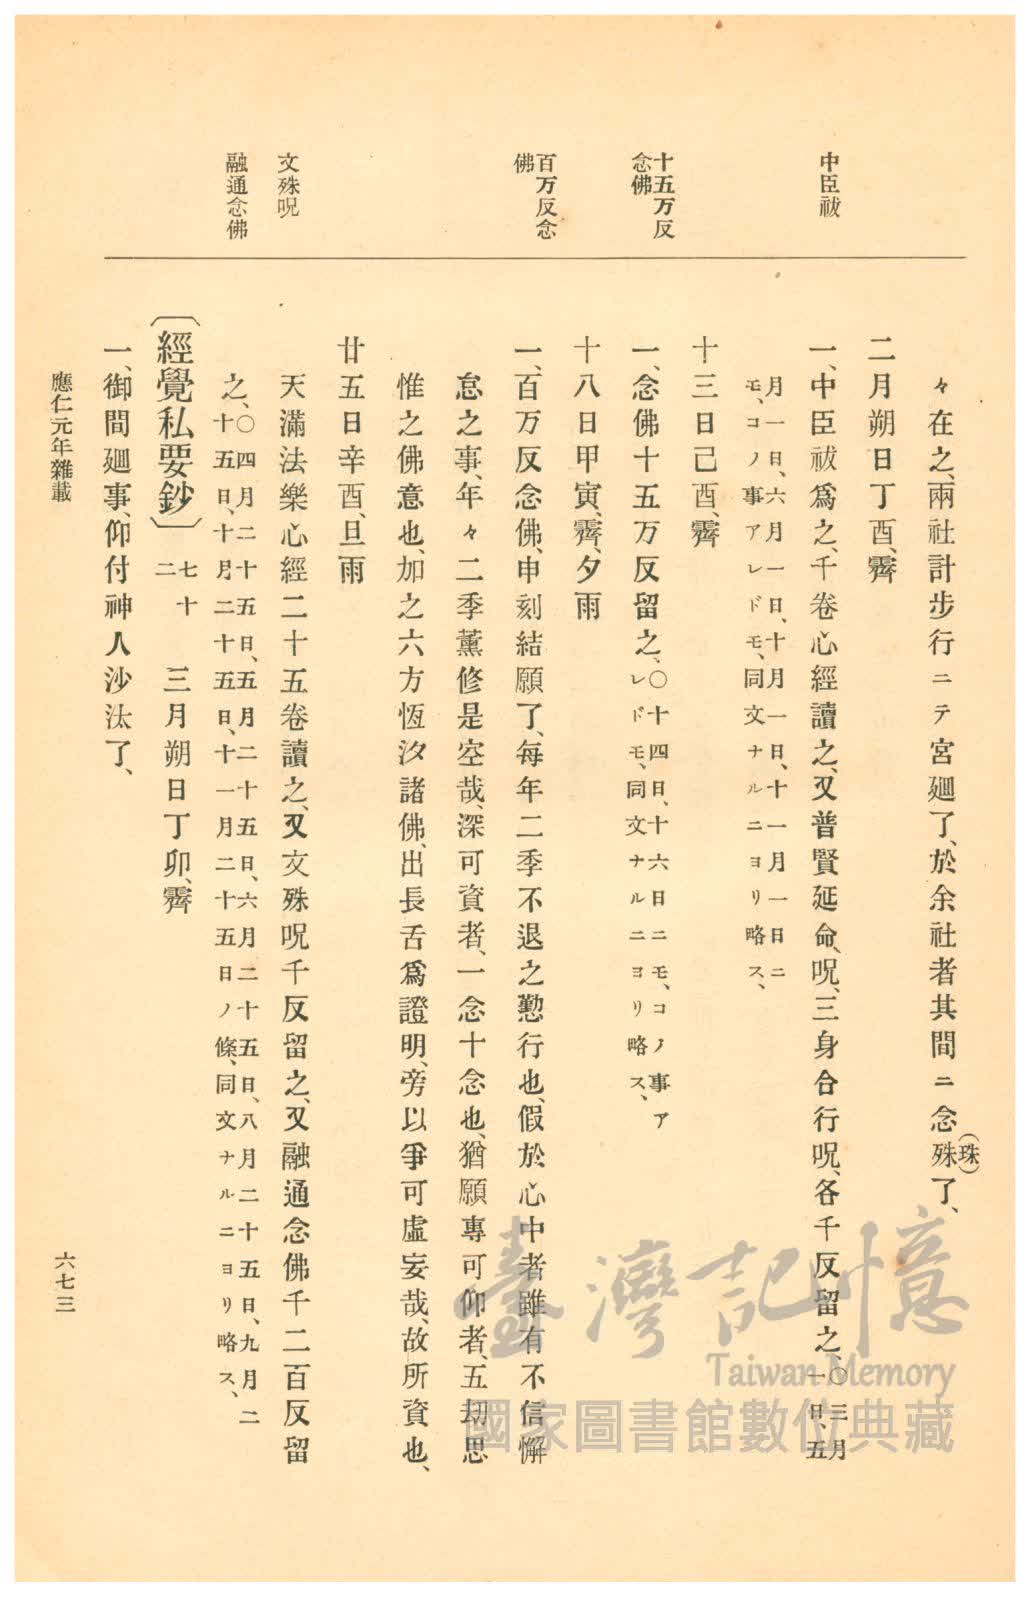 中臣祓
十五万反
念佛
百万反念
佛
文殊呪
融通念佛
々在之、兩社計步行ニテ宮廻了、於余社者其間ニ念殊(珠)了、
二月朔日丁酉、霽
一、中臣祓爲之、千卷心經讀之、又普賢延命、呪、三身合行呪、各千反留之、〇三月一日、五
月一日、六月一日、十月一日、十一月一日ニ
モ、コノ事アレドモ、同文ナルニヨリ略ス、
十三日己酉、霽
一、念佛十五万反留之、〇十四日、十六日ニモ、コノ事ア
レドモ、同文ナルニヨリ略ス、
十八日甲寅、霽、夕雨
一、百万反念佛、申刻結願了、每年二季不退之懃行也、假於心中者雖有不信懈
怠之事、年々二季薰修是空哉、深可資者、一念十念也、猶願專可仰者、五劫思
惟之佛意也、加之六方恆沙諸佛、出長舌爲證明、旁以爭可虛妄哉、故所資也、
廿五日辛酉、旦雨
天滿法樂心經二十五卷讀之、又文殊呪千反留之、又融通念佛千二百反留
之、〇四月二十五日、五月二十五日、六月二十五日、八月二十五日、九月二
十五日、十月二十五日、十一月二十五日ノ條、同文ナルニヨリ略ス、
〔經覺私要鈔〕七十二 三月朔日丁卯、霽
一、御間廻事、仰付神人沙汰了、
應仁元年雜載
六七三
臺灣記憶
Taiwan Memory
國家圖書館數位典藏